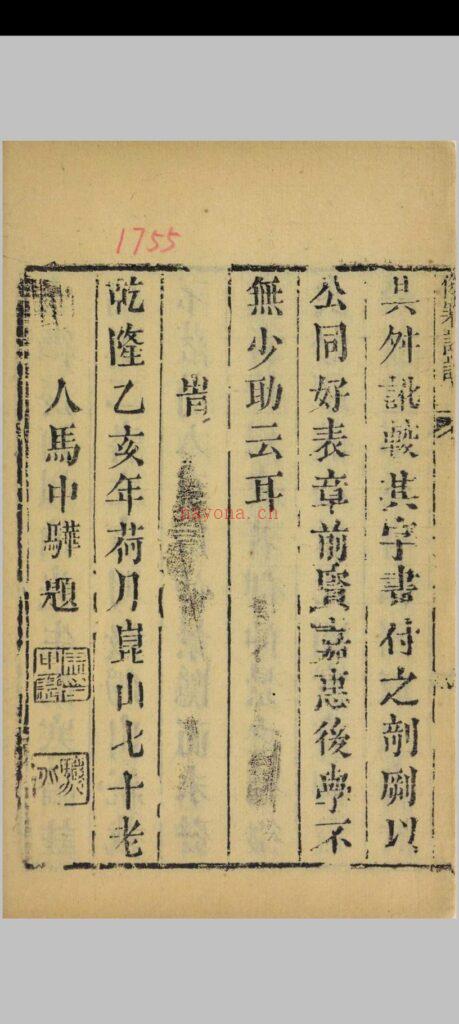 其舛訛較其字書付之剞劂以
公同好表章前賢嘉惠後學不
無少助云耳
峕
乾隆乙亥年荷月崑山七十老
人馬中驊題
1755
nayona.ch